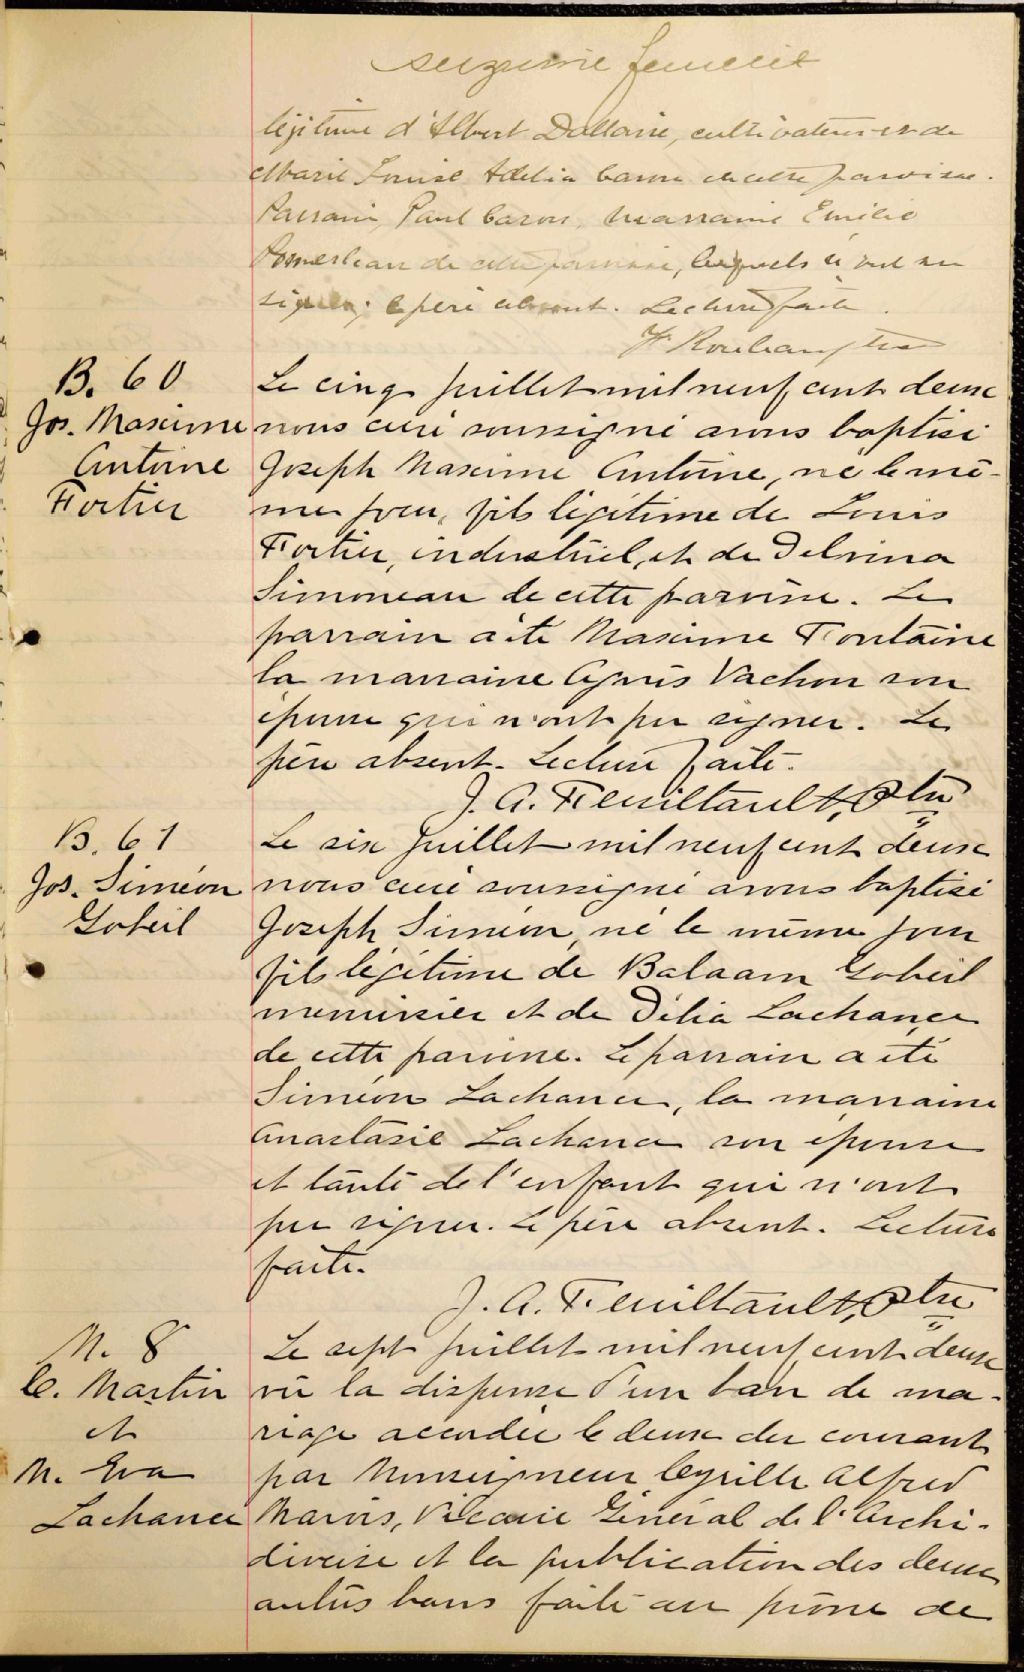 suzième feuillet
légitime d'Albert Dallaire, cultivateur et de
Marie Louise Adelia Caron de cette paroisse.
Parrain, Paul Caron, marraine Emilie
Pomerleau de cette paroisse, lesquels n'ont su
signer; le père absent. Lecture faite.
B. 60
Jos. Maxime
Antoine
Fortier
Le cinq juillet mil neuf cent deux
nous curé soussigné avons baptisé
Joseph Maxime Antoine, né le mê-
me jour, fils légitime de Louis
Fortier, industriel, et de Delvina
Simoneau de cette paroisse. Le
parrain a été Maxime Fontaine
la marraine Agnès Vachon son
épouse qui n'ont pu signer. Le
père absent. Lecture faite.
J. A. Feuiltault, Ptre
B. 61
Jos. Siméon
Gobeil
Le six juillet mil neuf cent deux
nous curé soussigné avons baptisé
Joseph Siméon, né le même jour
fils légitime de Balaam Gobeil
menuisier et de Délia Lachance
de cette paroisse. Le parrain a été
Siméon Lachance, la marraine
Anastasie Lachance son épouse
et tante de l'enfant qui n'ont
pu signer. Le père absent. Lecture
faite.
J. A. Feuiltault, Ptre
M. 8
C. Martin
et
M. Eva
Lachance
Le sept juillet mil neuf cent deux
vû la dispense d'un ban de ma-
riage accordée le deux du courant
par Monseigneur Cyrille Alfred
Marois, Vicaire Général de l'Archi-
diocèse et la publication des deux
autres bans faite au prône de